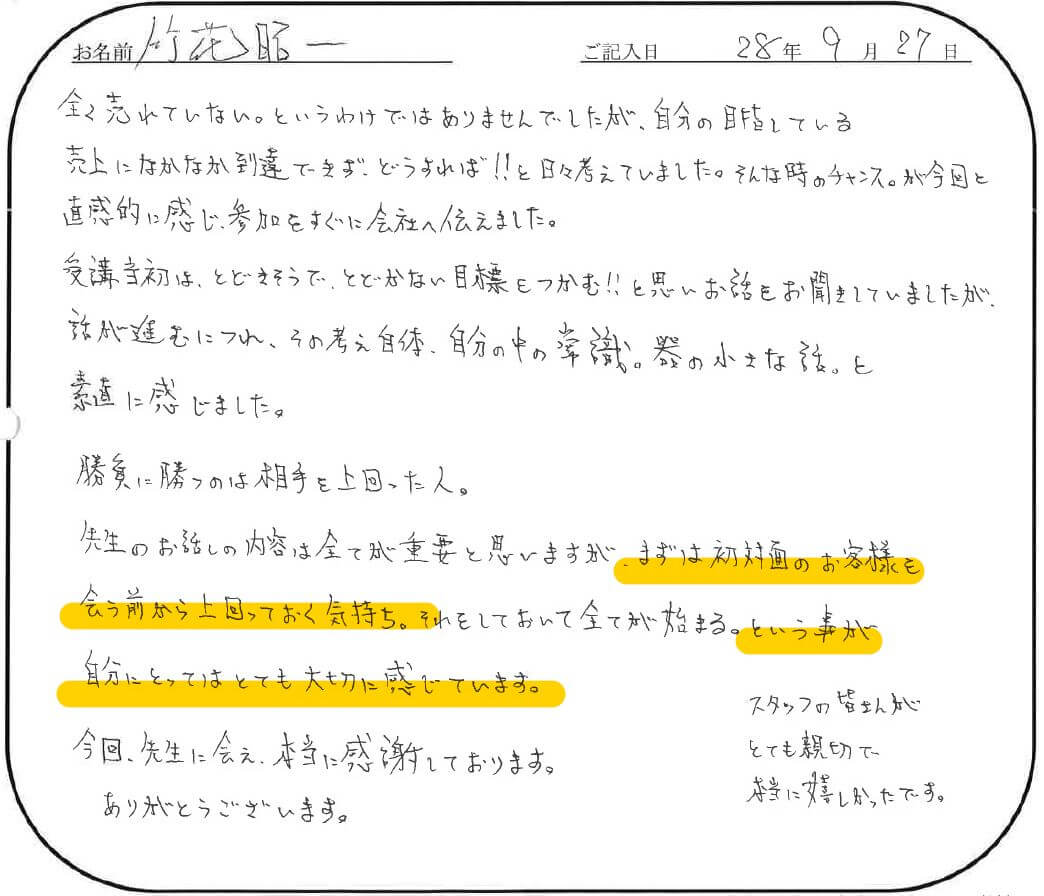 お名前 竹花昭一 ご記入日 28年9月27日
全く売れていない。というわけではありませんでしたが、自分の目指している
売上になかなか到達できず、どうすれば!!と日々考えていました。そんな時のチャンス。が今回と
直感的に感じ、参加をすぐに会社へ伝えました。
受講当初は、とどきそうで、とどかない目標をつかむ!!と思いお話をお聞きしていましたが、
話が進むにつれ、その考え自体、自分の中の常識。器の小さな話。と
素直に感じました。
勝負に勝つのは相手を上回った人。
先生のお話しの内容は全てが重要と思いますが、まずは初対面のお客様を
会う前から上回っておく気持ち。それをしておいて全てが始まる。という事が
自分にとってはとても大切に感じています。
今回、先生に会え、本当に感謝しております。
ありがとうございます。
スタッフの皆さんが
とても親切で
本当に嬉しかったです。